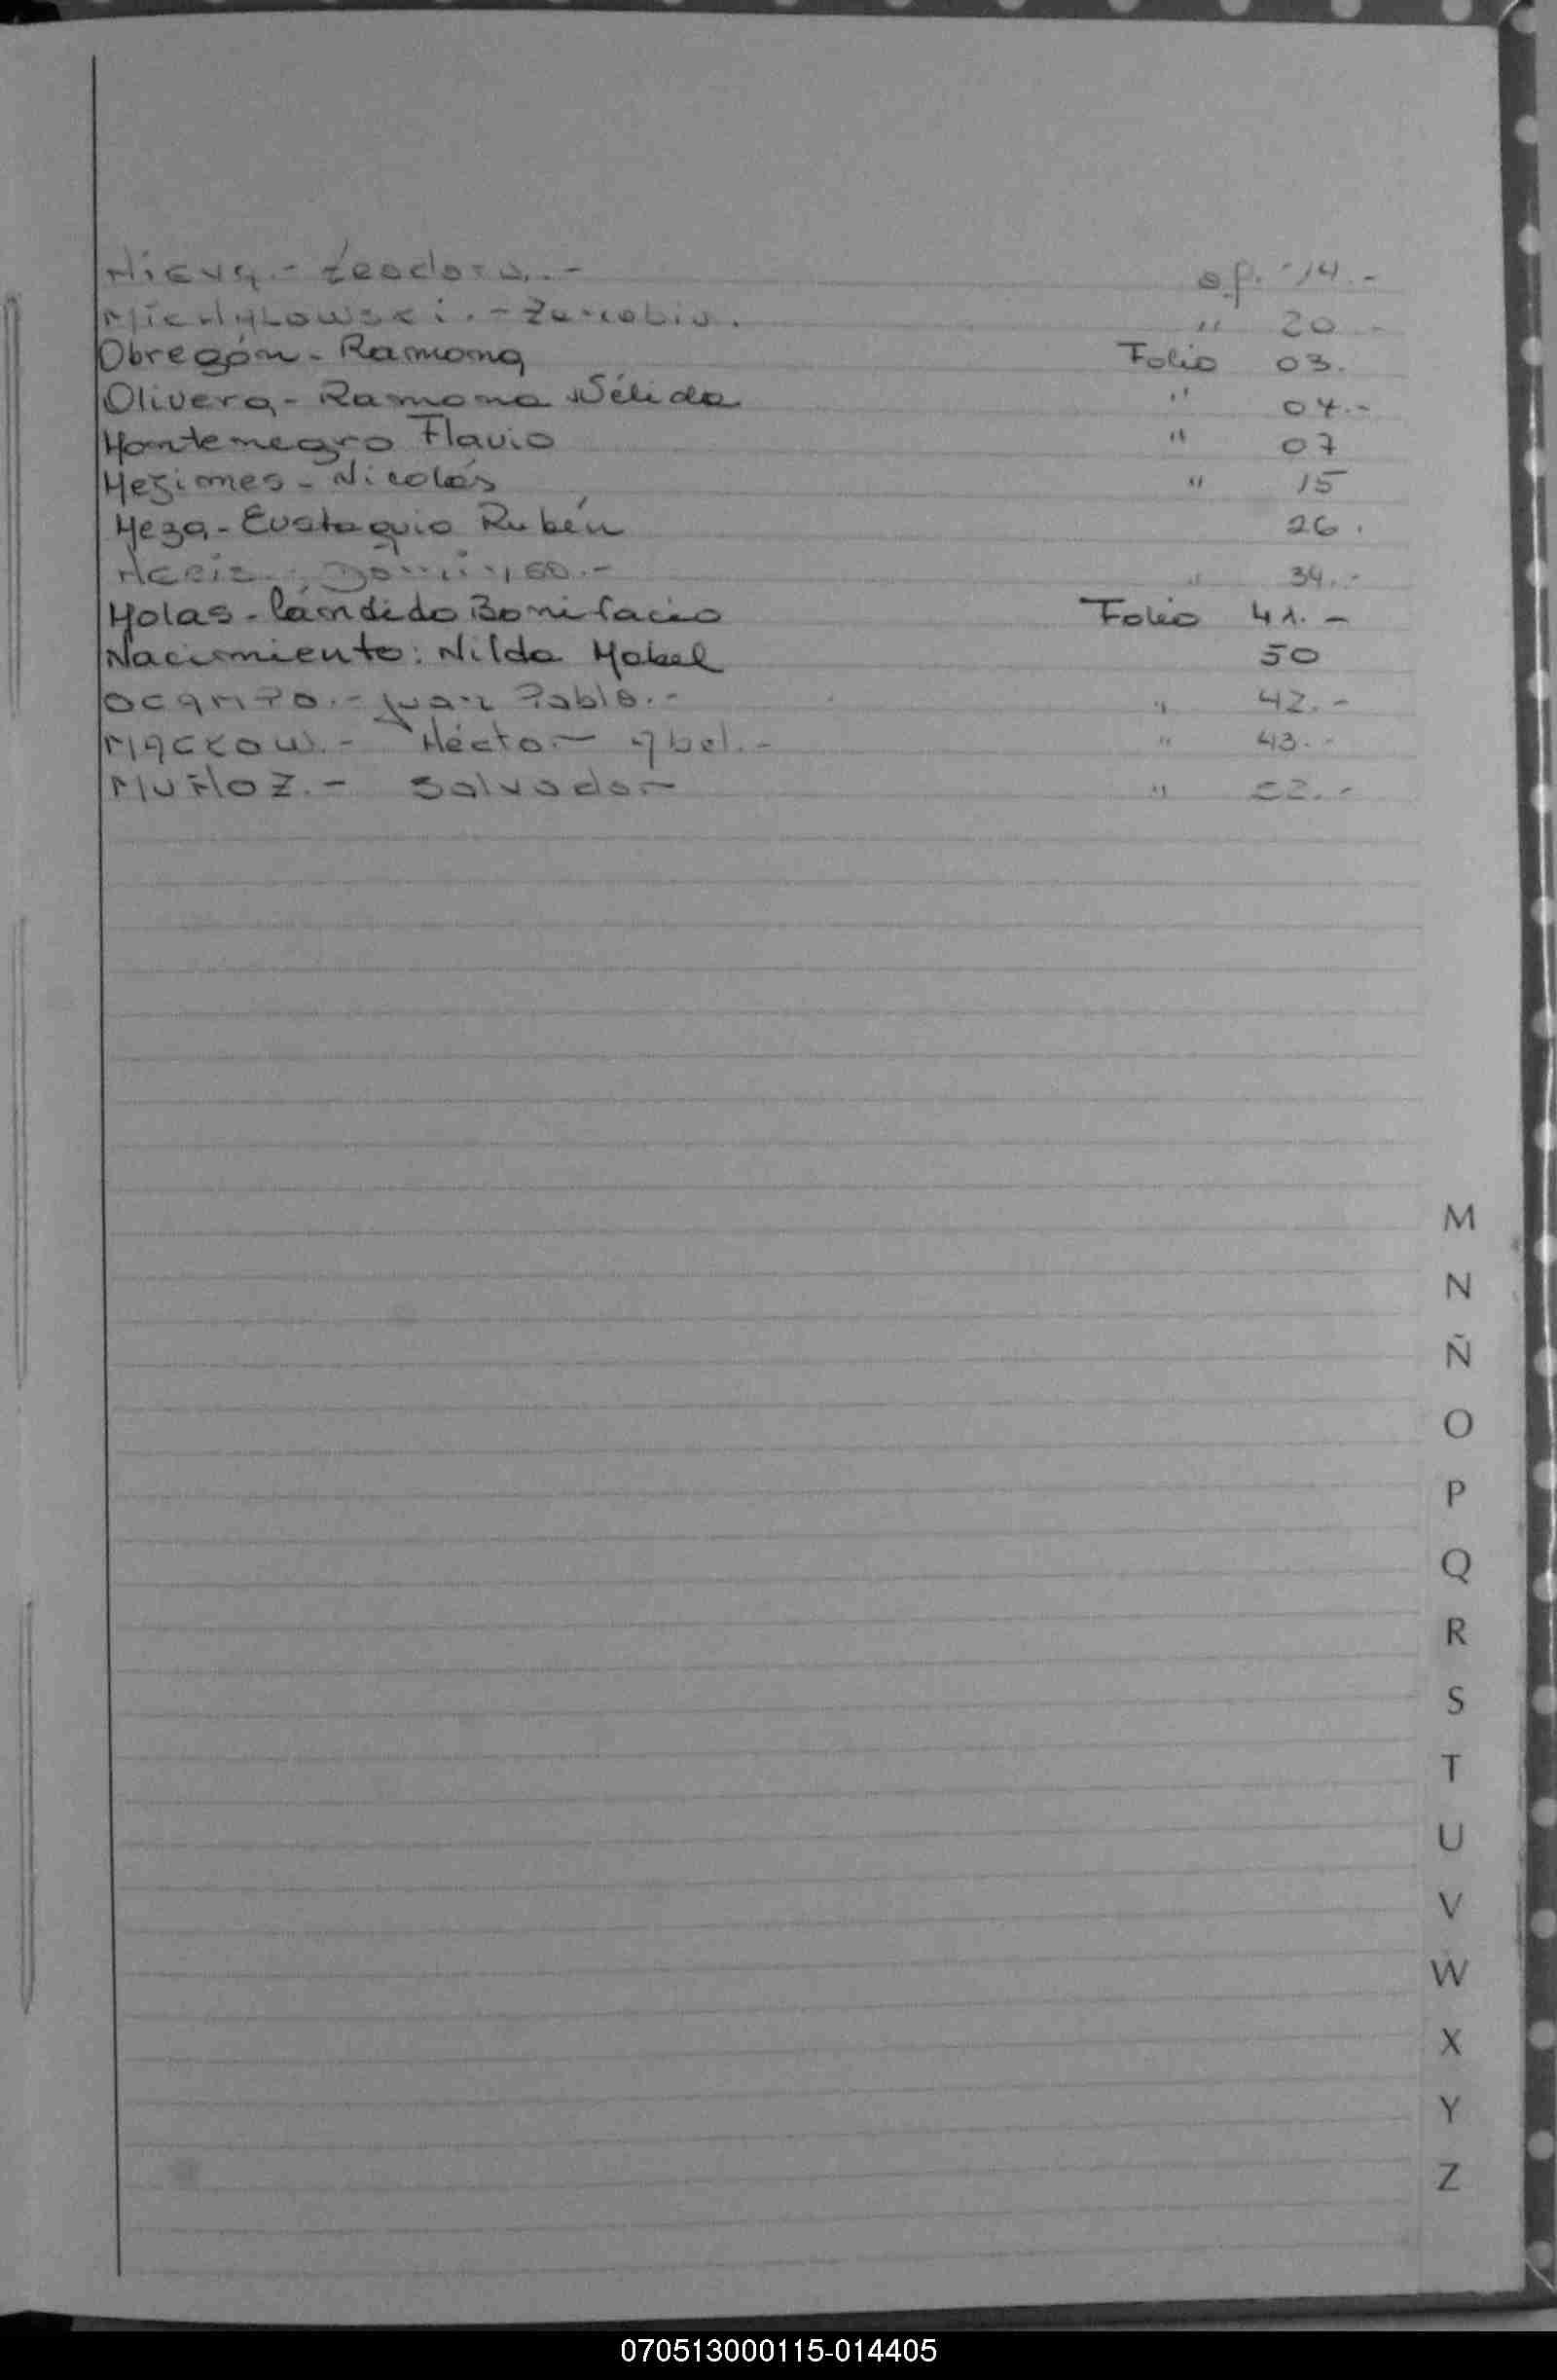 Nieva.- Teodoro.-  14.-
Michylowski.- Zenobio. " 20.-
Obregón - Ramona Folio 03.
Olivera - Ramona Nélida " 04.-
Montenegro Flavio " 07
Mezimes - Nicolás " 15
Meza - Eustaquio Rubén 26.
" 34.-
Molas - Cándido Bonifacio Folio 41.-
Nacimiento: Nilda Mabel 50
Ocampo.- Juan Pablo.- " 42.-
Mackow.- Héctor Abel.- " 43.-
Muñoz.- Salvador "
M
N
Ñ
O
P
Q
R
S
T
U
V
W
X
Y
Z
070513000115-014405